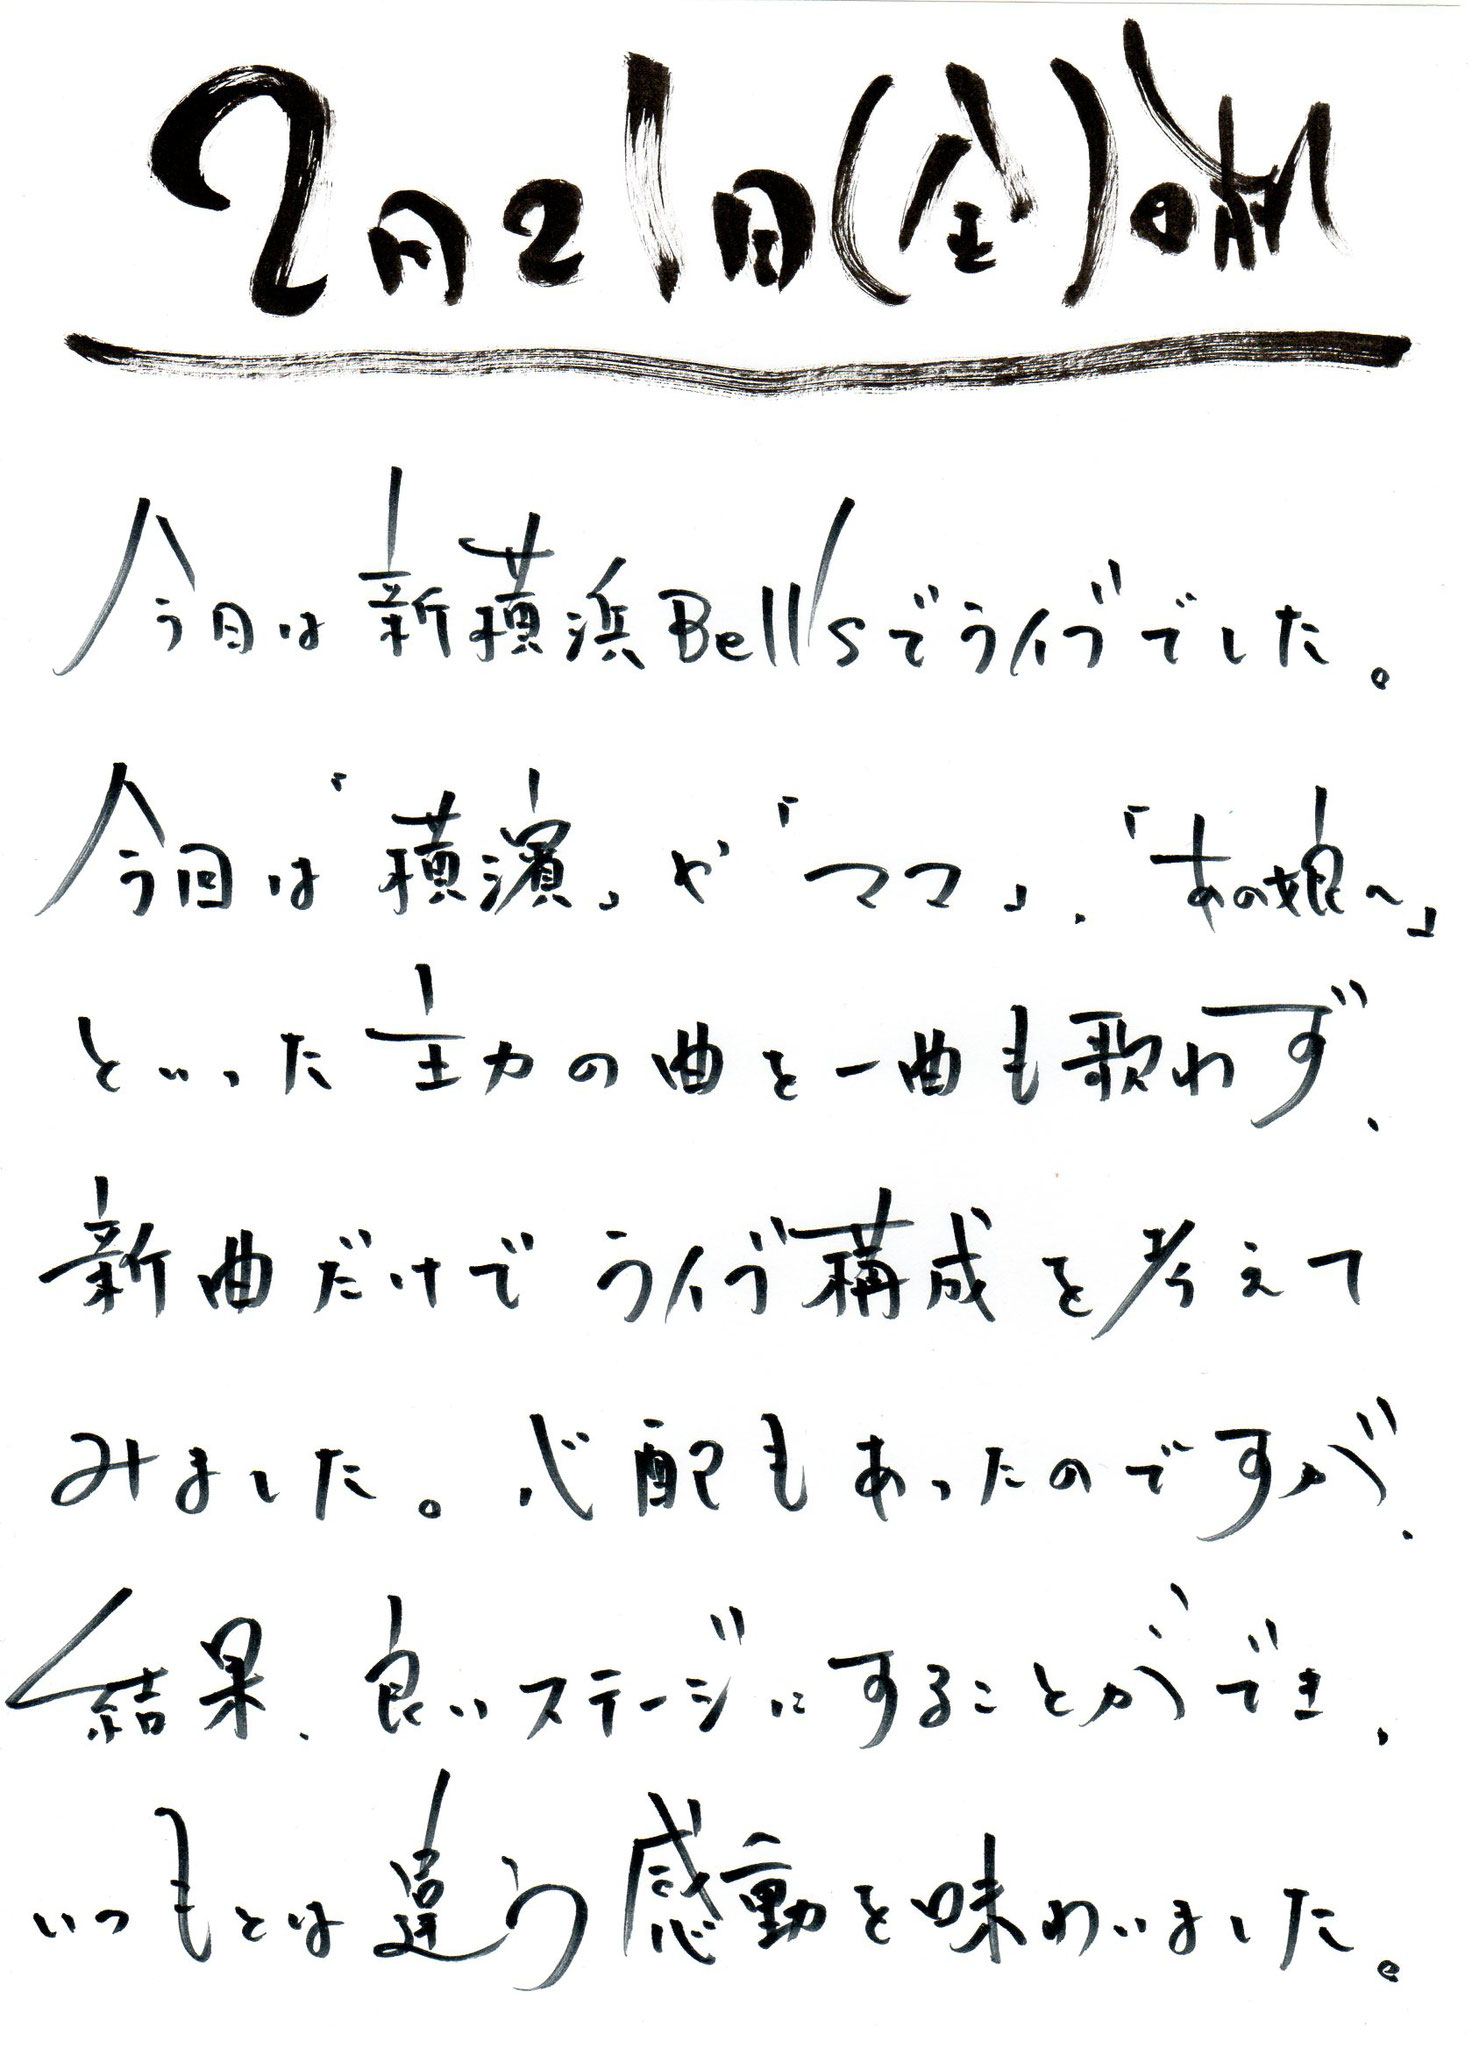 2月21日(金)晴れ
今日は新横浜Bell'sでライブでした。
今回は「横濱」や「ママ」、「あの娘へ」
といった主力の曲を一曲も歌わず、
新曲だけでライブ構成を考えて
みました。心配もあったのですが、
結果、良いステージにすることができ、
いつもとは違う感動を味わいました。